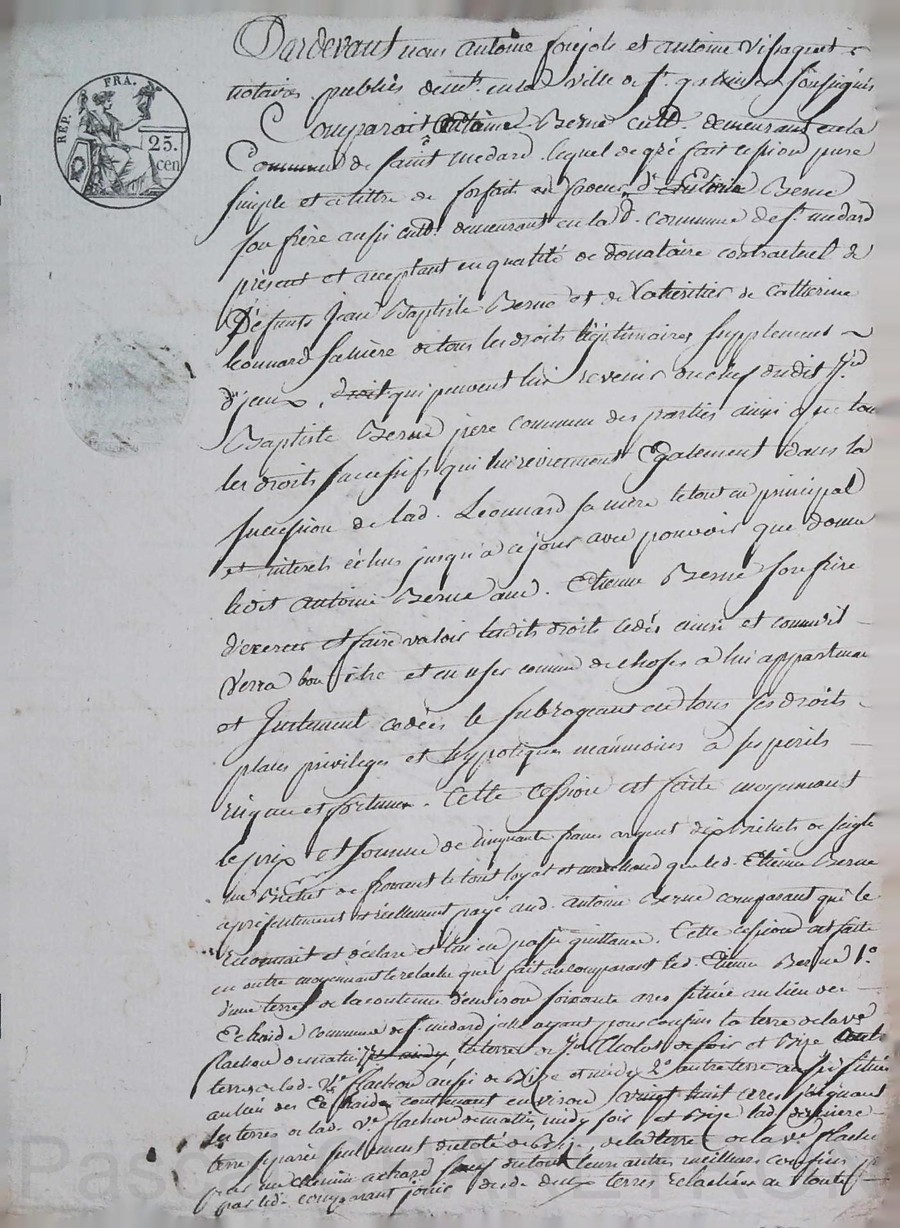 REP. FRA.
25. cen
Pardevant nous antoine foujols et antoine vissaguet
notaires publics demt. en la ville de st. galmier soussignés
Comparait antoine Berne cultr. demeurant en la
Commune de saint medard lequel de gré fait cession pure
simple et a titre de forfait en faveur d'Etienne Berne
son frère aussi cultr. demeurant en la d. commune de st. medard
présent et acceptant en qualité de donataire contractuel de
Défunts Jean Baptiste Berne et de Catherine
Leonnard sa mère de tous les droits légitimaires supplement
d'yceux, droit qui peuvent lui revenir du chef dudit Jn.
Baptiste Berne pere commun des parties ainsi que tou
les droits successifs qui lui reviennent Egalement dans la
succession de lad. Leonnard sa mère le tout en principal
et interets échus jusqu'à ce jour avec pouvoir que donne
ledit antoine Berne aud. Etienne Berne son frère
d'exercer et faire valoir lesdits droits cedés ainsi et comme il
verra bon être et en user comme de choses à lui appartenan
et Justement cedées le subrogeant en tous ses droits
places privileges et hypoteques néanmoins à ses perils
risque et fortune. Cette Cession est faite moyennant
le prix et somme de cinquante francs argent dix Bichets de seigle
un Bichet de froment le tout loyal et marchand que led. Etienne Berne
a présentement et réellement payé aud. antoine Berne comparant qui le
reconnait et déclare et lui en passe quittance. Cette cession est faite
en outre moyennant le relache que fait au comparant led. Etienne Berne 1.o
d'une terre de la contenue d'environ soixante ares située au lieu des
Echaide commune de st. medard ayant pour confins la terre de la ve.
flachou de matin et midy, la terre de de soir et Bize
terres de lad. ve. flachou aussi de Bize et midy 2.o autre terre aussi située
au lieu des Echaide contenant environ vingt huit ares joignant
les terres de lad. ve. flachou de matin, midy soir et Bize lad. derniere
terre separée seulement du coté de Bize de la terre de la ve. flacho
par un chemin sauf du tout leurs autres meilleurs confins p
par led. comparant jouir desdes. deux terres relachées
Pasca